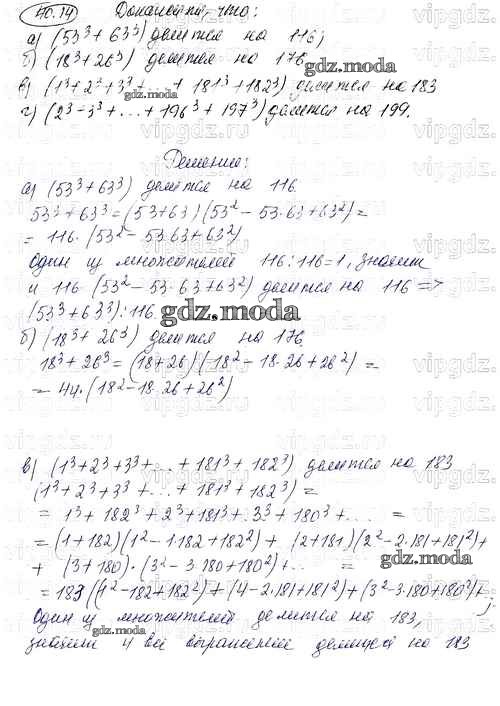 40.14 Доказать, что:
а) (53³ + 63³) делится на 116;
б) (18³ + 26³) делится на 176
в) (1³ + 2³ + 3³ + ... + 181³ + 182³) делится на 183
г) (2³ - 3³ + ... + 196³ + 197³) делится на 199.
Решение:
а) (53³ + 63³) делится на 116.
53³ + 63³ = (53 + 63)(53² - 53·63 + 63²) =
= 116·(53² - 53·63 + 63²)
Один из множителей 116:116=1, значит
и 116·(53² - 53·63 + 63²) делится на 116 =>
(53³ + 63³):116.
б) (18³ + 26³) делится на 176
18³ + 26³ = (18 + 26)(18² - 18·26 + 26²) =
= 44·(18² - 18·26 + 26²)
в) (1³ + 2³ + 3³ + ... + 181³ + 182³) делится на 183
(1³ + 2³ + 3³ + ... + 181³ + 182³) =
= 1³ + 182³ + 2³ + 181³ + 3³ + 180³ + ... =
= (1 + 182)(1² - 1·182 + 182²) + (2 + 181)(2² - 2·181 + 181²) +
+ (3 + 180)·(3² - 3·180 + 180²) + ... =
= 183((1² - 182 + 182²) + (4 - 2·181 + 181²) + (3² - 3·180 + 180²) + ...;
Один из множителей делится на 183,
значит и всё выражение делится на 183
gdz.moda
gdz.moda
gdz.moda
gdz.moda
gdz.moda
vipgdz.com